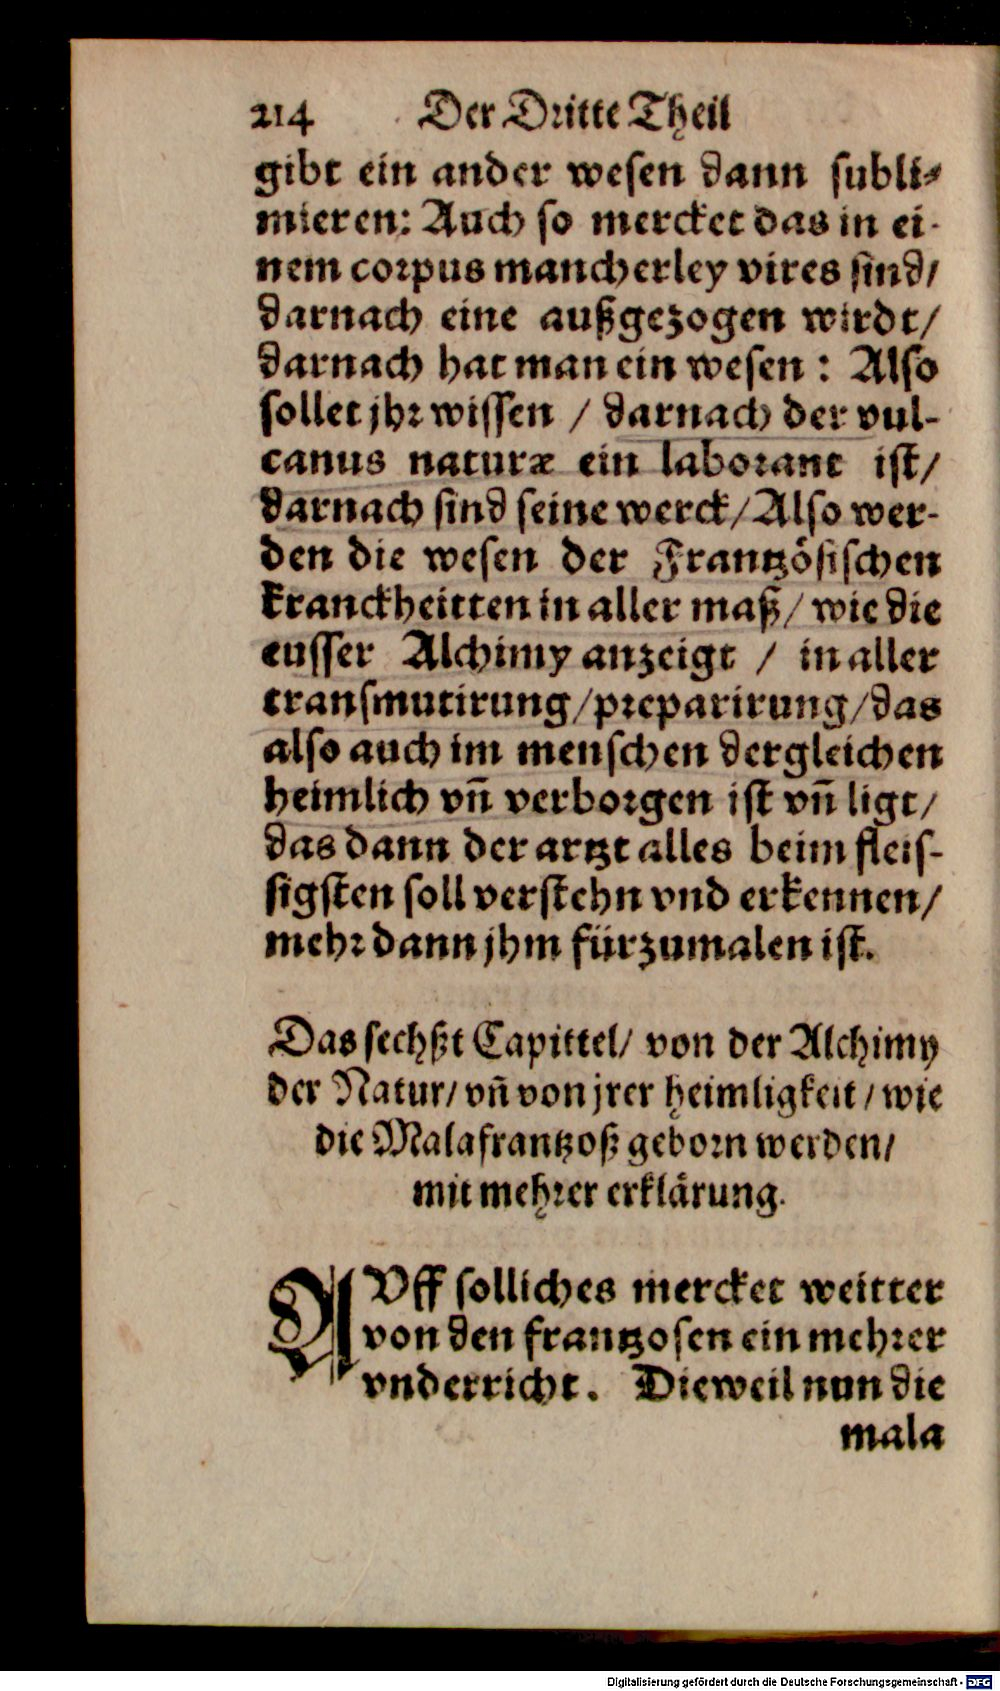 214 Der Dritte Theil
gibt ein ander wesen dann subli-
mieren: Auch so mercket das in ei-
nem corpus mancherley vires sind/
darnach eine außgezogen wirdt/
darnach hat man ein wesen: Also
sollet jhr wissen / darnach der vul-
canus naturæ ein laborant ist/
darnach sind seine werck/ Also wer-
den die wesen der Frantzösischen
kranckheitten in aller maß/ wie die
eusser Alchimy anzeigt / in aller
transmutirung/ preparirung/ das
also auch im menschen dergleichen
heimlich vñ verborgen ist vñ ligt/
das dann der artzt alles beim fleis-
sigsten soll verstehn vnd erkennen/
mehr dann jhm fürzumalen ist.
Das sechßt Capittel/ von der Alchimy
der Natur/ vñ von jrer heimligkeit / wie
die Malafrantzoß geborn werden/
mit mehrer erklärung.
AVff solliches mercket weitter
von den frantzosen ein mehrer
vnderricht. Dieweil nun die
mala
Digitalisierung gefördert durch die Deutsche Forschungsgemeinschaft - DFG